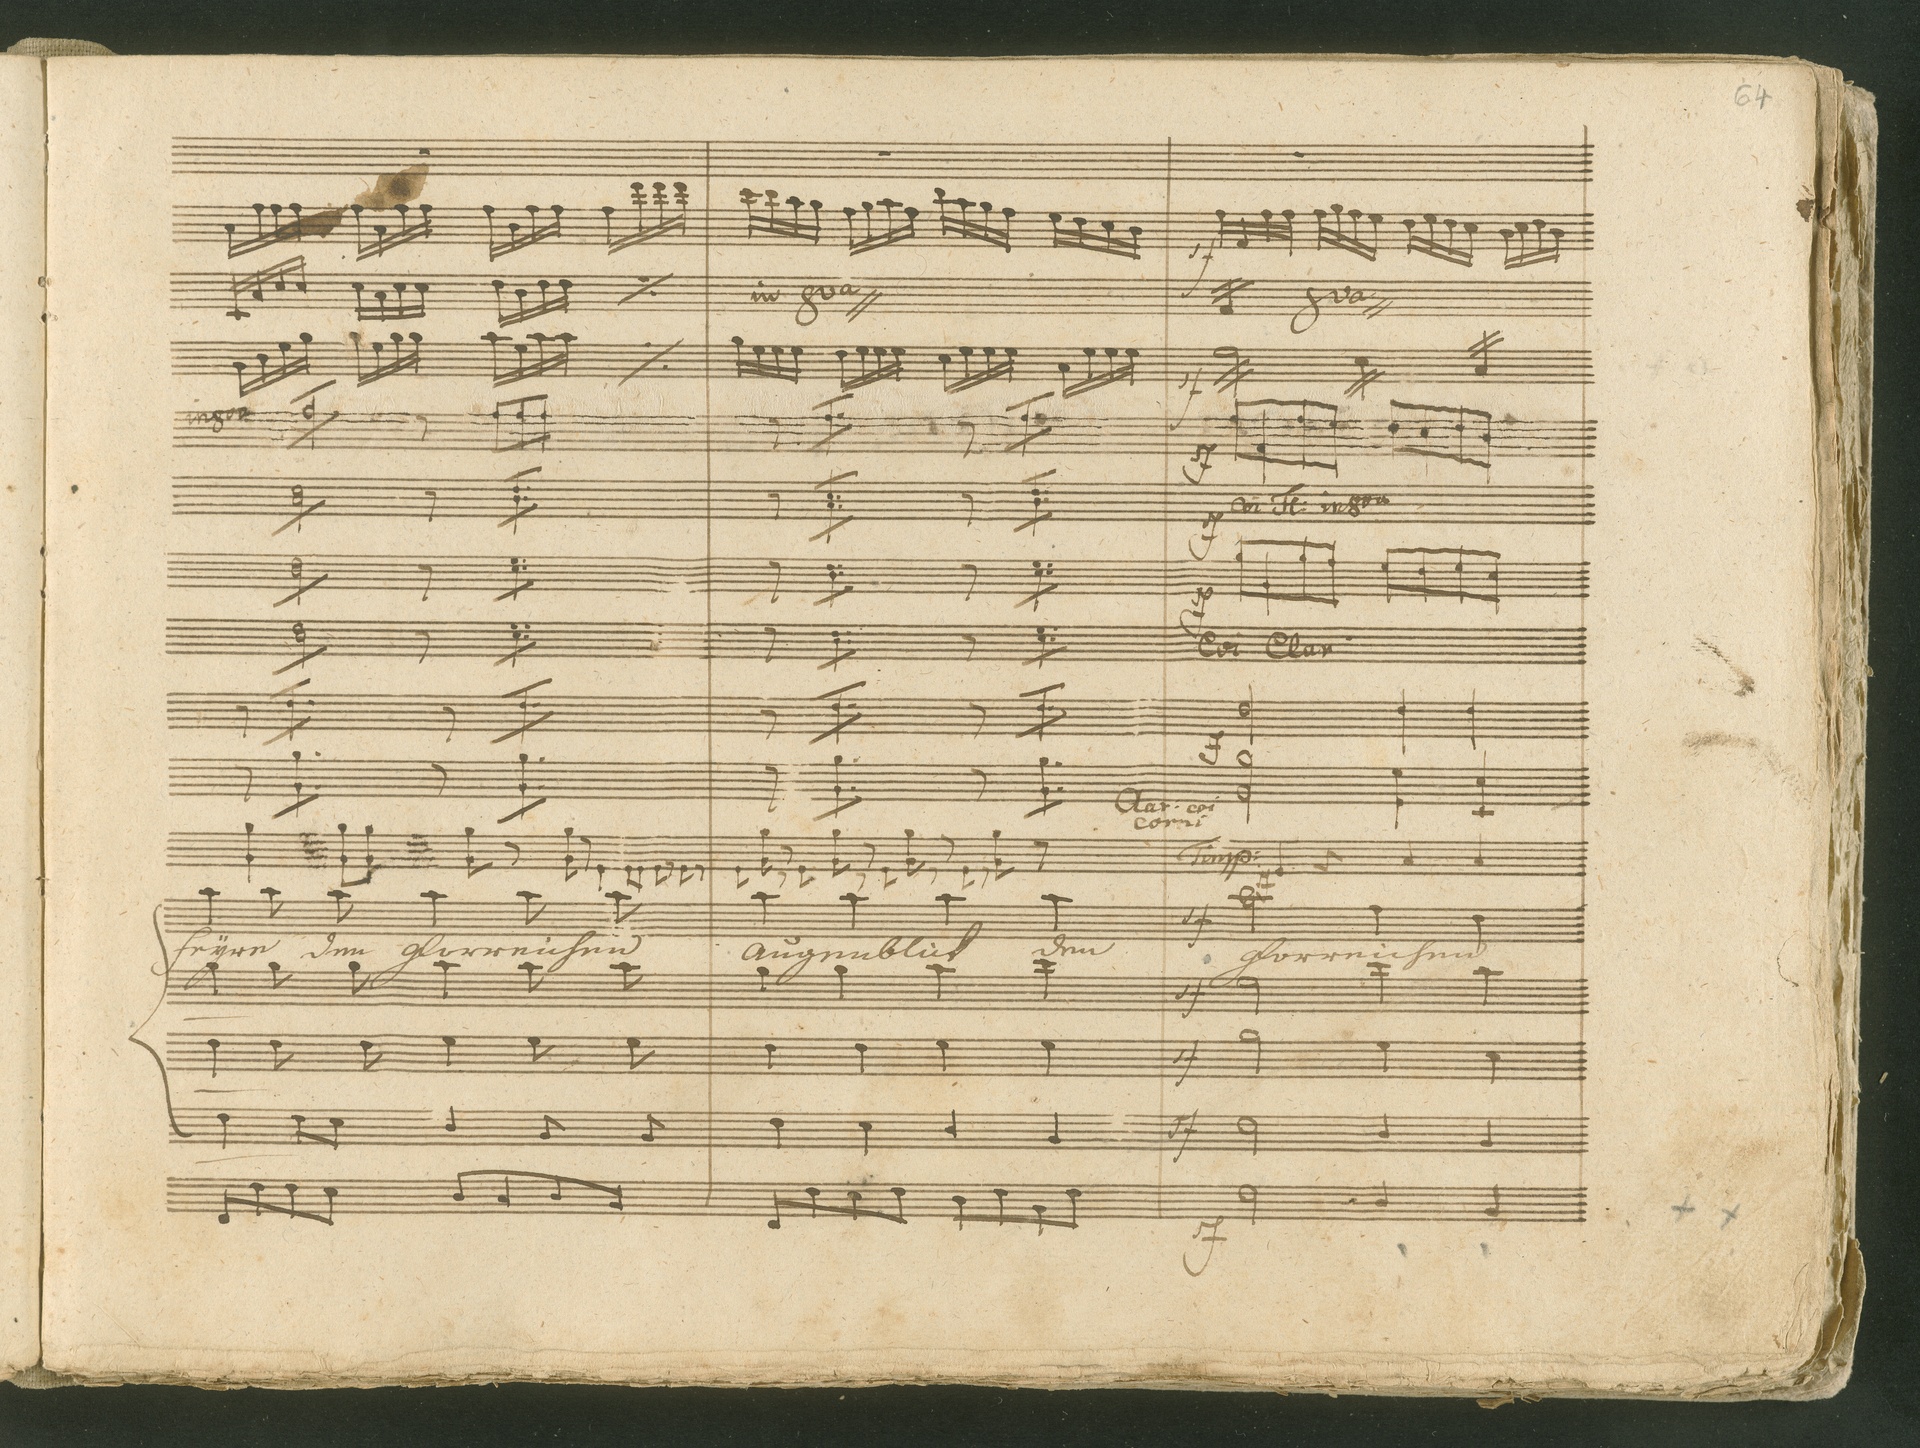 64
sf
in 8va
8va
sf
in 8va
sf
coi Fl. in 8va
sf
sf
Coi Clar
sf
Clar: coi
corni
Timp:
sf
feÿre den glorreichen augenblick den glorreichen
sf
sf
sf
sf